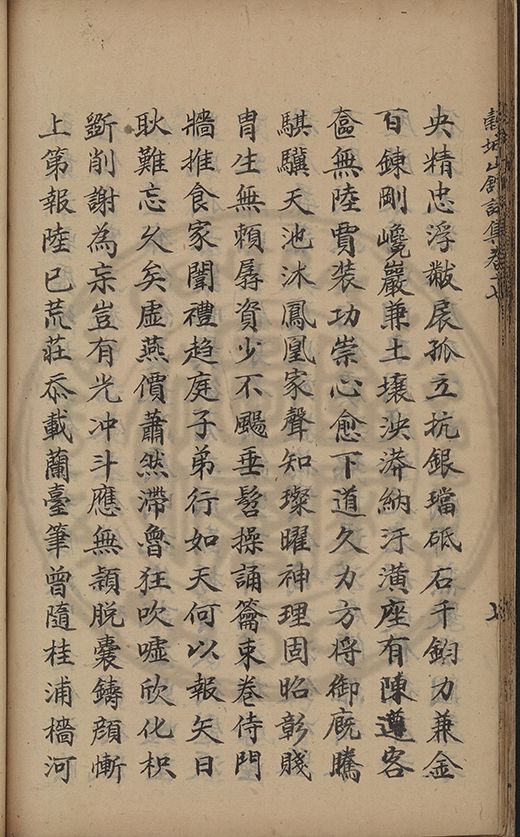 穀城山館詩集卷十七
央精忠浮黻扆孤立抗銀璫砥石千鈞力兼金
百鍊剛巉巖兼土壤泱漭納汙潢座有陳遵客
奩無陸賈裝功崇心愈下道久力方將御廐騰
騏驥天池沐鳳凰家聲知璨曜神理固昭彰賤
胄生無賴孱資少不颺垂髫操誦籥束卷侍門
牆推食家聞禮趨庭子弟行如天何以報矢日
耿難忘久矣虛燕價蕭然滯魯狂吹噓欣化枳
斲削謝為杗豈有光冲斗應無穎脫囊鑄顔慚
上第報陸已荒莊忝載蘭臺筆曾隨桂浦檣河